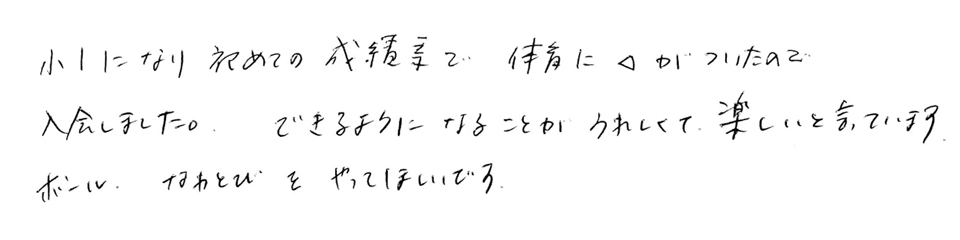 小1になり 初めての 成績表で 体育に △ が ついたので
入会しました。 できるように なることが うれしくて 楽しいと言っています
ボール. なわとび を やってほしいです.